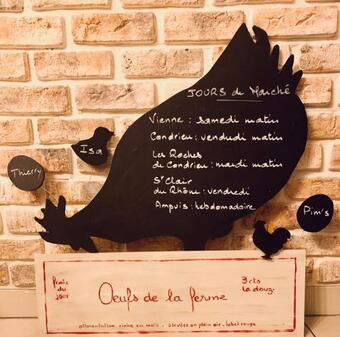 JOURS de Marché
Vienne : samedi matin
Condrieu : vendredi matin
Les Roches
de Condrieu : mardi matin
St Clair
du Rhône : vendredi
Ampuis : hebdomadaire
Isa
Thierry
Pim's
frais
du
jour
Oeufs de la ferme
3 cts
la douz.
alimentation riche en maïs . élevées en plein air . label rouge